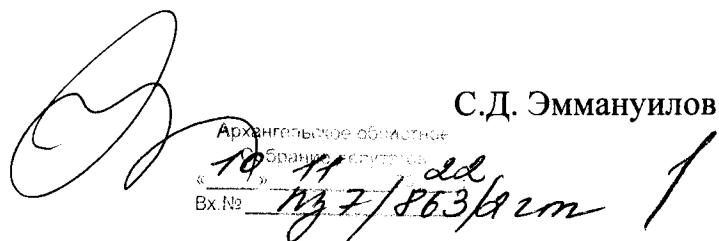 С.Д. Эммануилов
Архангельское областное
Собрание депутатов
«10» 11 22
Вх.№ пз 7/863